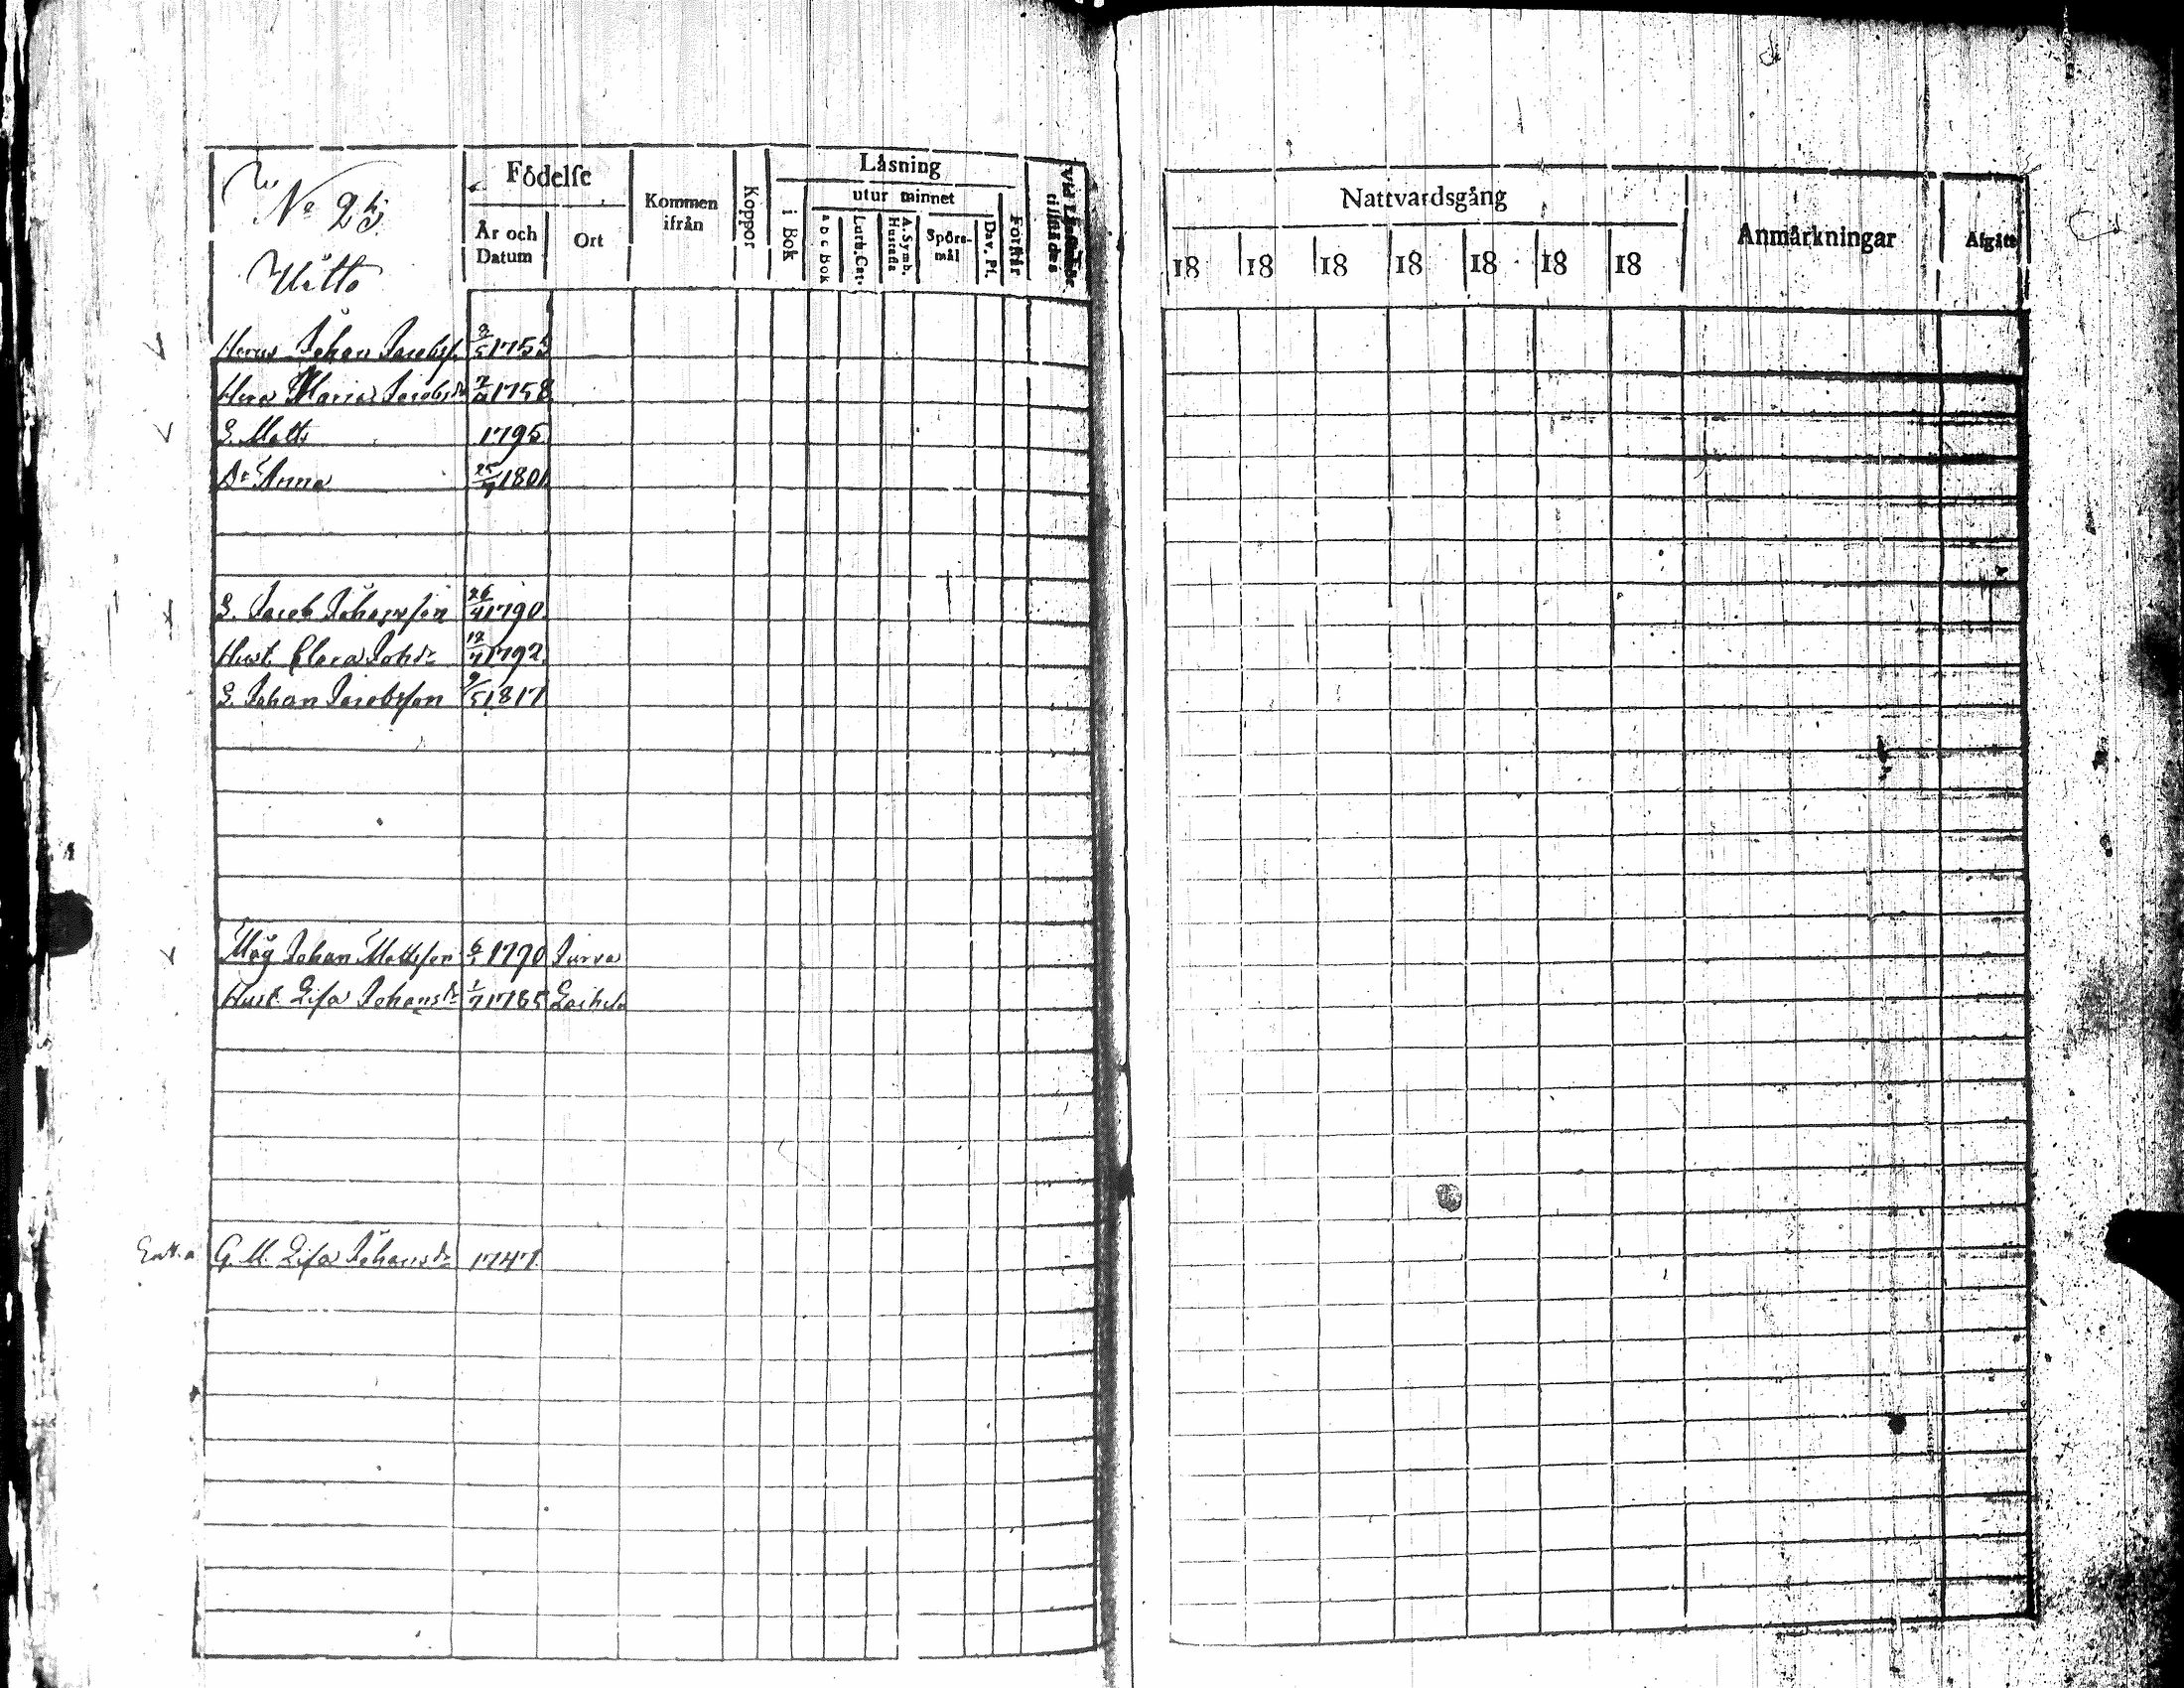 No 25.
Födelse
År och Datum
Ort
Kommen ifrån
Koppor
Läsning
i Bok
utur minnet
a b c Bok
Luth. Cat.
A. Symb. Hustafla
Spörs-mål
Dav. Ps.
Förstår
Johan Jacobss. 1753
Maria Jacobsdr 1758
S. Matts 1795
Dr Anna 25/7 1801
S. Jacob Johansson 26/4 1790
Hust. Clara Johdr 1792
S. Johan Jacobsson 9/5 1817
Måg Johan Mattsson 6/1 1790 Jurva
Hust. Lisa Johansdr 1/7 1785
G. M. Lisa Johansdr 1747
Nattvardsgång
18 18 18 18 18 18 18
Anmärkningar
Afgått